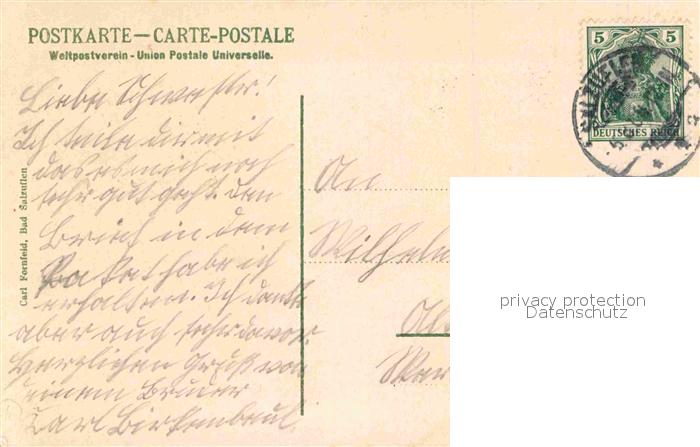 POSTKARTE — CARTE-POSTALE
Weltpostverein - Union Postale Universelle.
Liebe Schwester!
Ich teile dir mit
das es mich noch
sehr gut geht. Den
Brief in dem
Paket habe ich
erhalten. Ich danke
aber auch sehr davor.
Herzlichen Gruß von
einem Bruder
Carl Birkenbeul
Carl Fornfeld, Bad Salzuflen
An
Wilhelm
5 5
DEUTSCHES REICH
privacy protection
Datenschutz